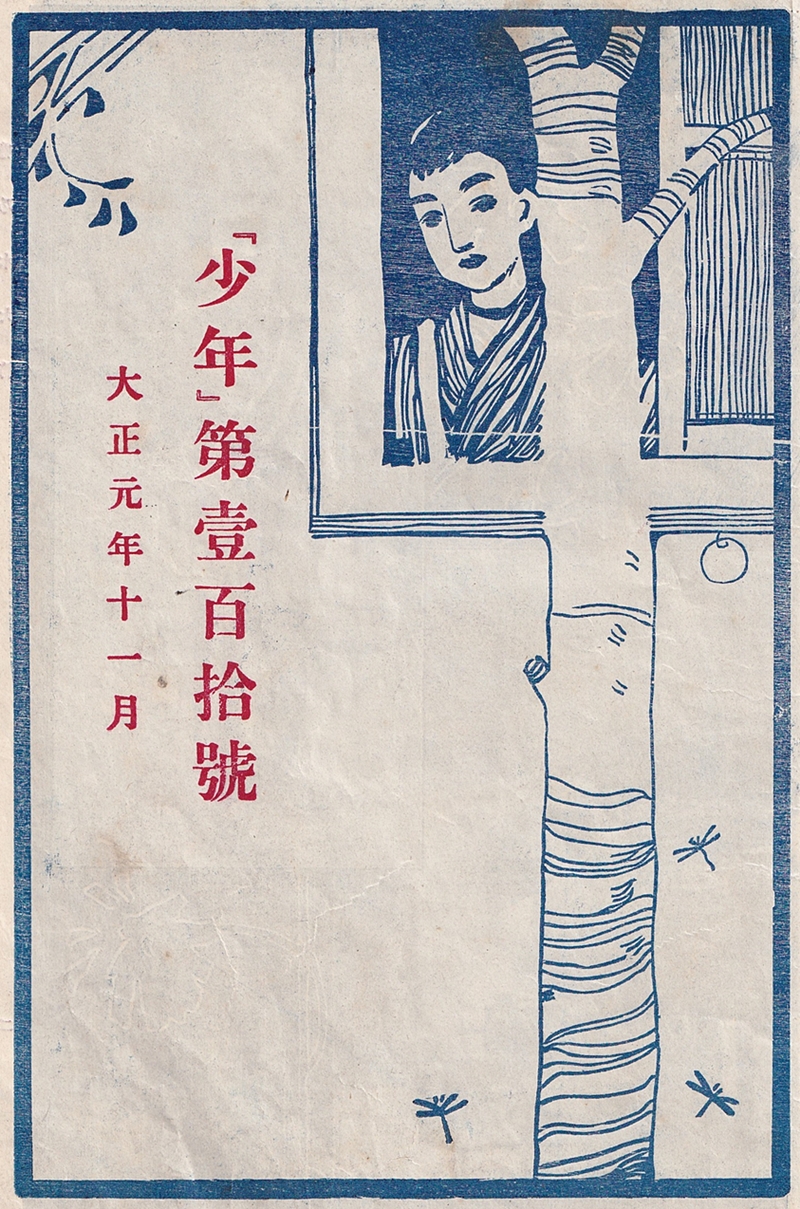 「少年」第壹百拾號
大正元年十一月